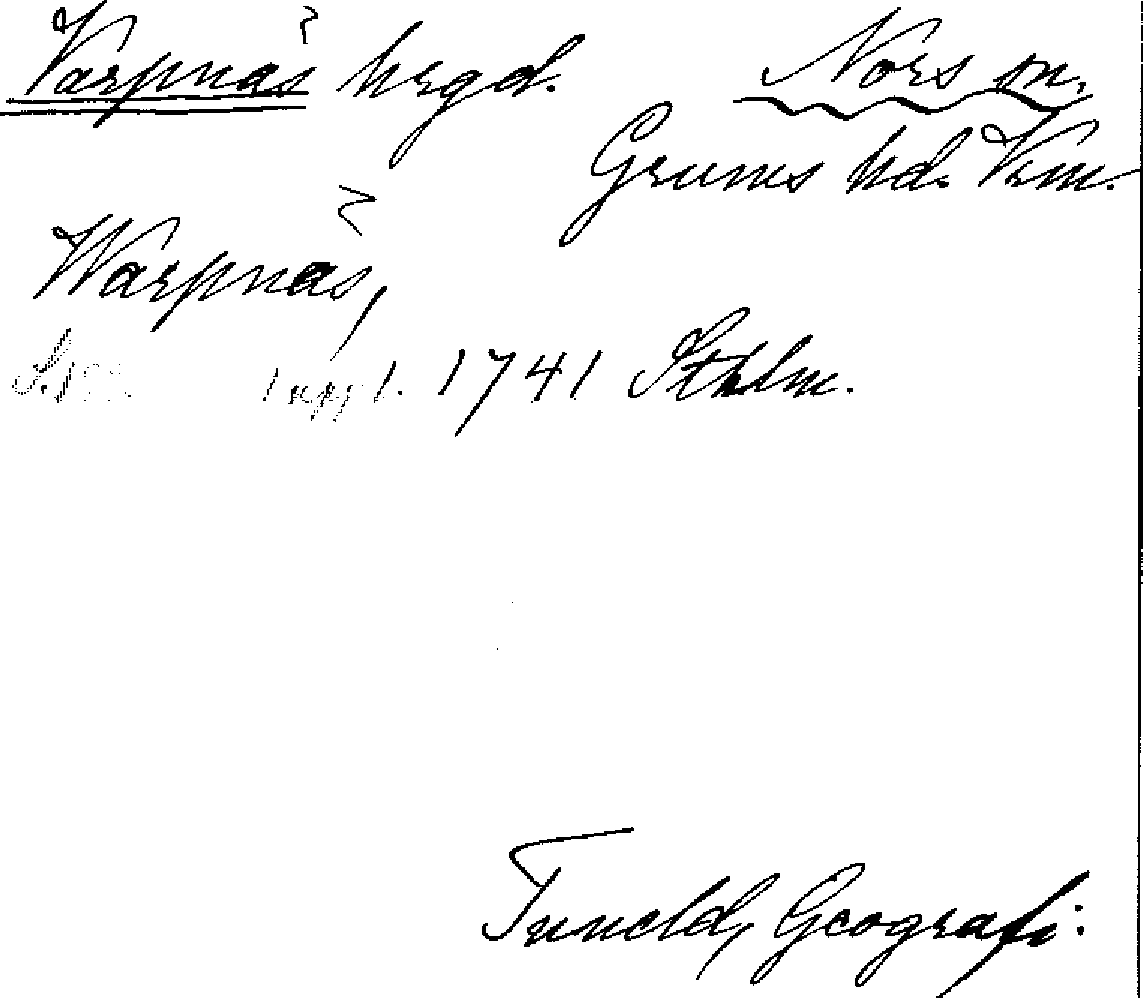 Varpnäs hrgd. Nors sn.
Grums hd. Vrm.
Warpnäs,
1 uppl. 1741 Sthlm.
Tuneld, Geografi.